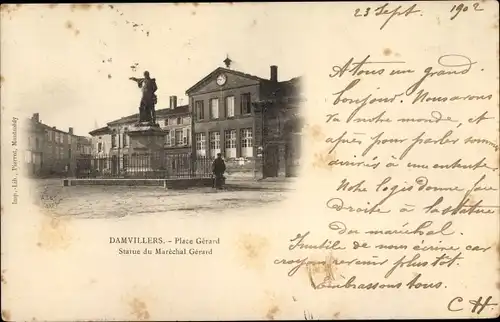 23 Sept. 1902
A tous un grand
bonjour. Nous avons
vu notre monde, et
après pour parler sommes
arrivés à une entente
Notre logis donne par
droite à la statue
du maréchal.
Inutile de nous écrire car
croyons revenir plus tôt.
Embrassons tous.
C H.
DAMVILLERS. - Place Gérard
Statue du Maréchal Gérard
Imp.-Lib. Pierrot, Montmédy